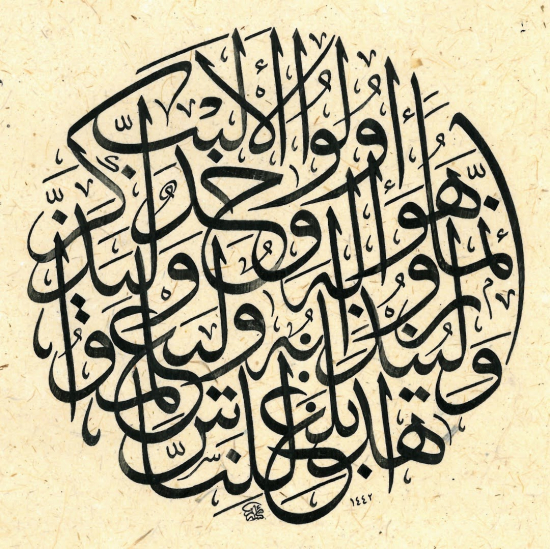 هذا بلغ للناس ولينذروا به وليعلموا أنما هو إله وحد وليذكر أولوا الألبب
١٤٤٢